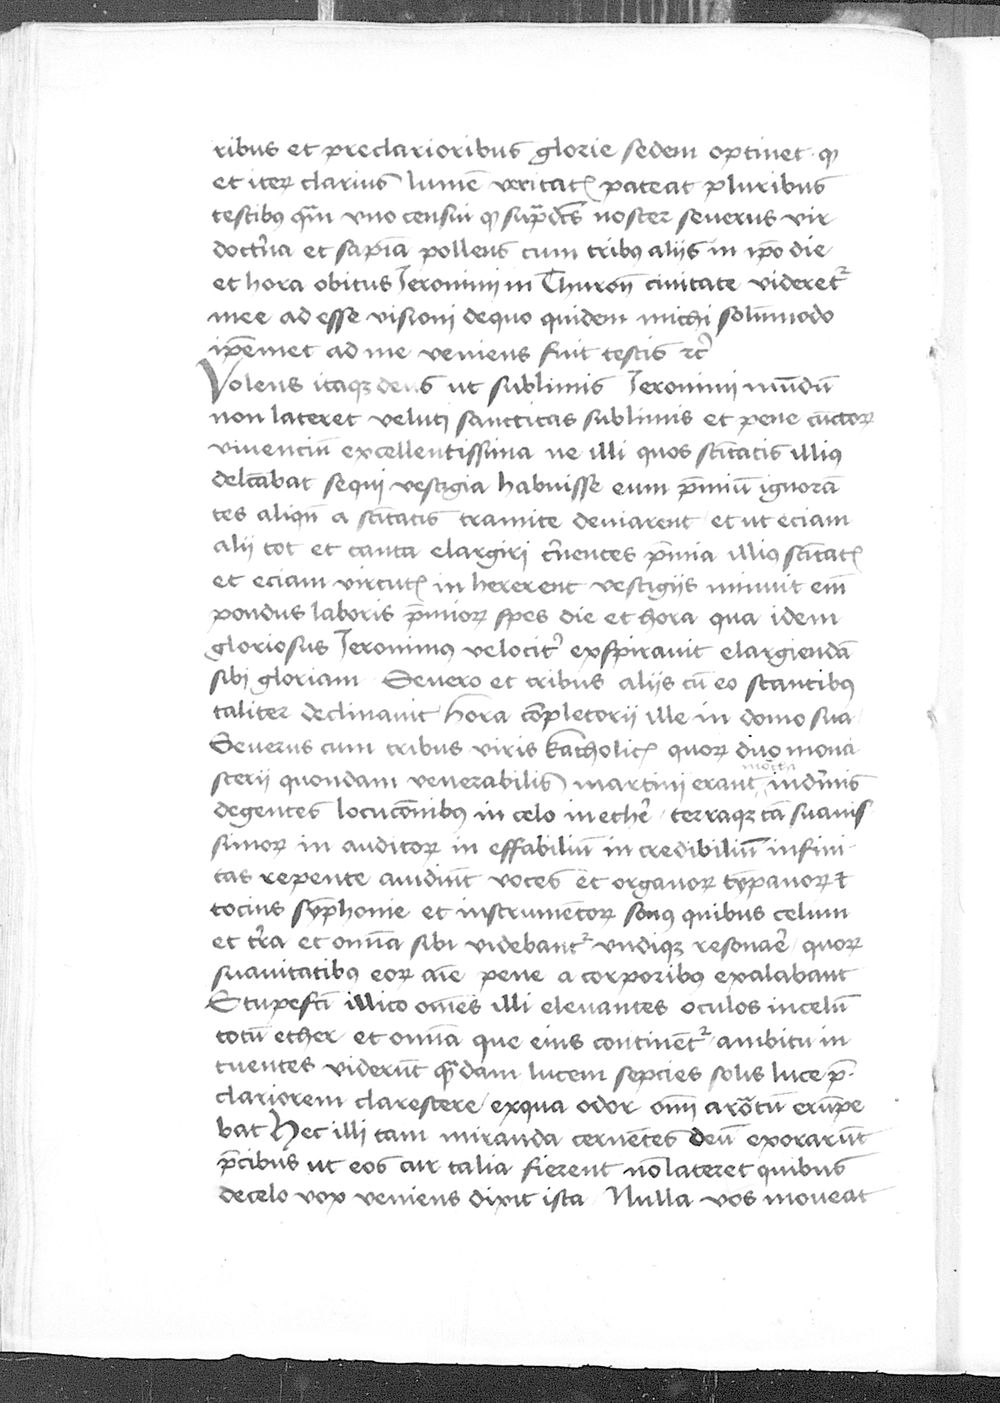 ribus et preclarioribus glorie sedem optinet qꝫ
et iteꝝ clarius lumē veritatꝭ pateat pluribus
testibꝰ qᷓm vno censui qꝫ supᷓdcūs noster seuerus vir
doctⁱna et sapiā pollens cum tribꝰ aliis in ipō die
et hora obitus Jeronimi in Thuron̄ ciuitate videretᷣ
mee ad esse visioni de quo quidem michi solūmodo
ipēmet ad me veniens fuit testis ⁊cͤ
Volens itaqꝫ deus ut sublimis Jeronimi mūdū
non lateret veluti sanctitas sublimis et pene cūctoꝝ
viuenciū excellentissima ne illi quos scītatis illiꝰ
delc̄abat sequi vestigia habuisse eum p̄miū ignorā
tes aliqn̄ a scītatis tramite deuiarent et ut eciam
alij tot et tanta elargiri cⁱnentes p̄mia illiꝰ scītatꝭ
et eciam virtutꝭ in hererent vestigijs minuit em̄
pondus laboris p̄mioꝝ spes die et hora qua idem
gloriosus Jeronimꝰ velocitᷣ exspirauit elargiendā
sibi gloriam Seuero et tribus aliis cū eo stantibꝰ
taliter declinauit hora cōpletorij ille in domo sua
Seuerus cum tribus viris katholicꝭ quoꝝ duo mona
sterij quondam venerabilis martini erant indⁱnis
degentes locucōnibꝰ in celo in etheᷣ terraqꝫ tā suauis
simoꝝ in auditoꝝ in effabiliū in credibiliū infini
tas repente audiūt voces et organoꝝ tȳpanoꝝ ⁊
tocius sȳphonie et instrumētoꝝ sonꝰ quibus celum
et tᷣra et omīa sibi videbantᷣ vndiqꝫ resonaᷣe quoꝝ
suauitatibꝰ eoꝝ aīe pene a corporibꝰ exalabant
Stupefcī illico om̄es illi eleuantes oculos in celū
totū ether et omīa que eius continētᷣ ambitu in
tuentes viderūt qᷓdam lucem sepcies solis luce p̄
clariorem clarescere ex qua odor om̄i arōatū erūpe
bat Hec illi tam miranda cernētes deū exorarūt
p̄cibus ut eos cur talia fierent nō lateret quibus
de celo vox veniens dixit ista Nulla vos moueat